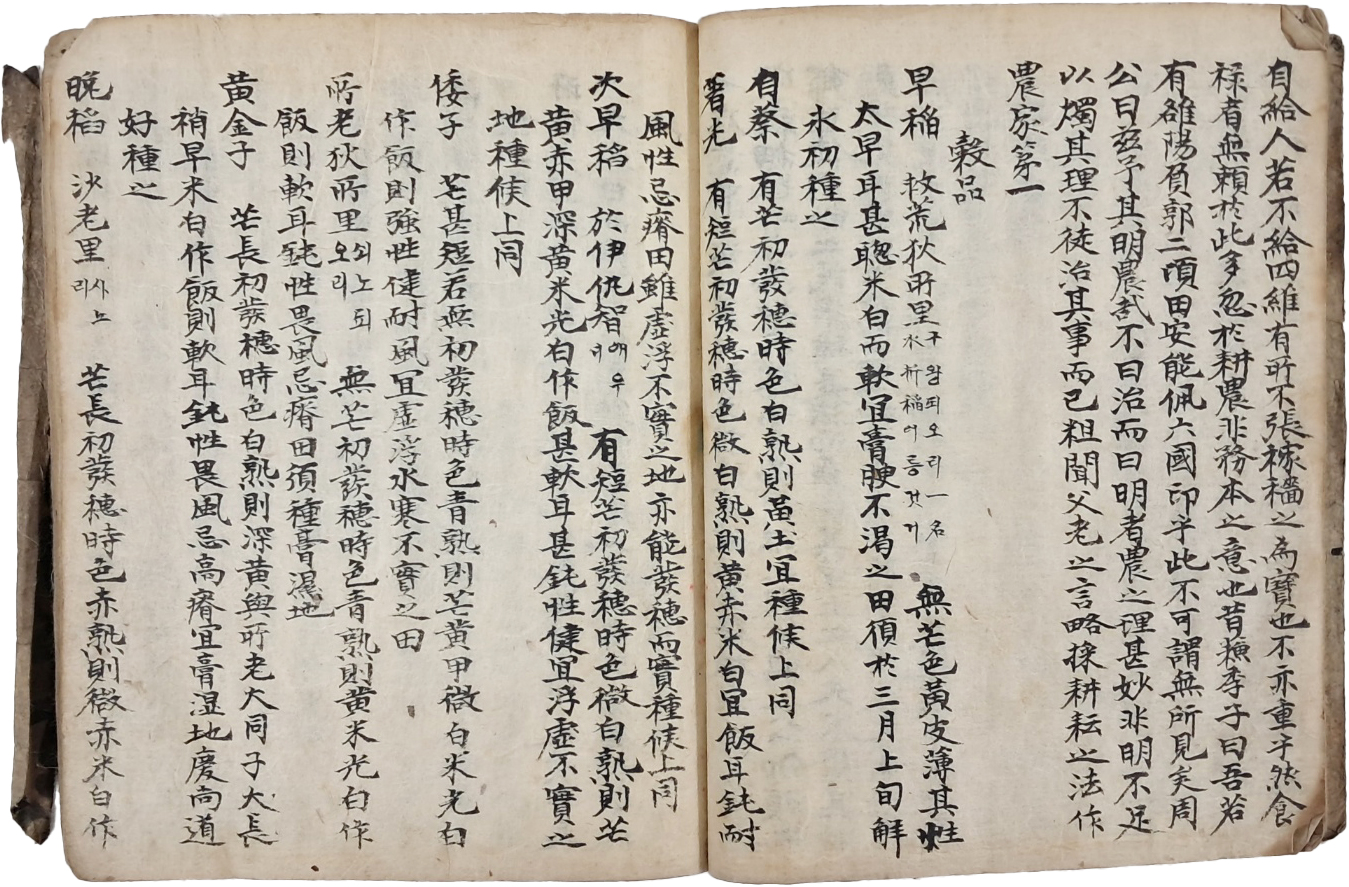 自給人若不給四維有所不張稼穡之為寶也不亦重乎然食
祿者無賴於此多忽於耕農非務本之意也昔穎季子曰吾若
有雒陽負郭二頃田安能佩六國印乎此不可謂無所見矣周
公曰玆予其明農哉不曰治而曰明者農之理甚妙非明不足
以燭其理不徒治其事而已粗聞父老之言略採耕耘之法作
農家第一
穀品
早稻 救荒狄所里구황되오리一名氷折稻어름것기 無芒色黃皮薄其性
太早耳甚聰米白而軟宜膏腴不渴之田須於三月上旬解
氷初種之
自蔡 有芒初發穗時色白熟則黃土宜種候上同
著光 有短芒初發穗時色微白熟則黃赤米白宜飯耳鈍耐
風性忌瘠田雖虛浮不實之地亦能發穗而實種候上同
次早稻 於伊仇智에우디 有短芒初發穗時色微白熟則芒
黃赤甲深黃米光白作飯甚軟耳甚鈍性健宜浮虛不實之
地種候上同
倭子 芒甚短若無初發穗時色青熟則芒黃甲微白米光白
作飯則強性健耐風宜虛浮水寒不實之田
所老狄所里쇠노되오리 無芒初發穗時色青熟則黃米光白作
飯則軟耳鈍性畏風忌瘠田須種膏濕地
黃金子 芒長初發穗時色白熟則深黃與所老大同子大長
稍早米白作飯則軟耳鈍性畏風忌高瘠宜膏湿地慶尚道
好種之
晚稻 沙老里사노리 芒長初發穗時色赤熟則微赤米白作